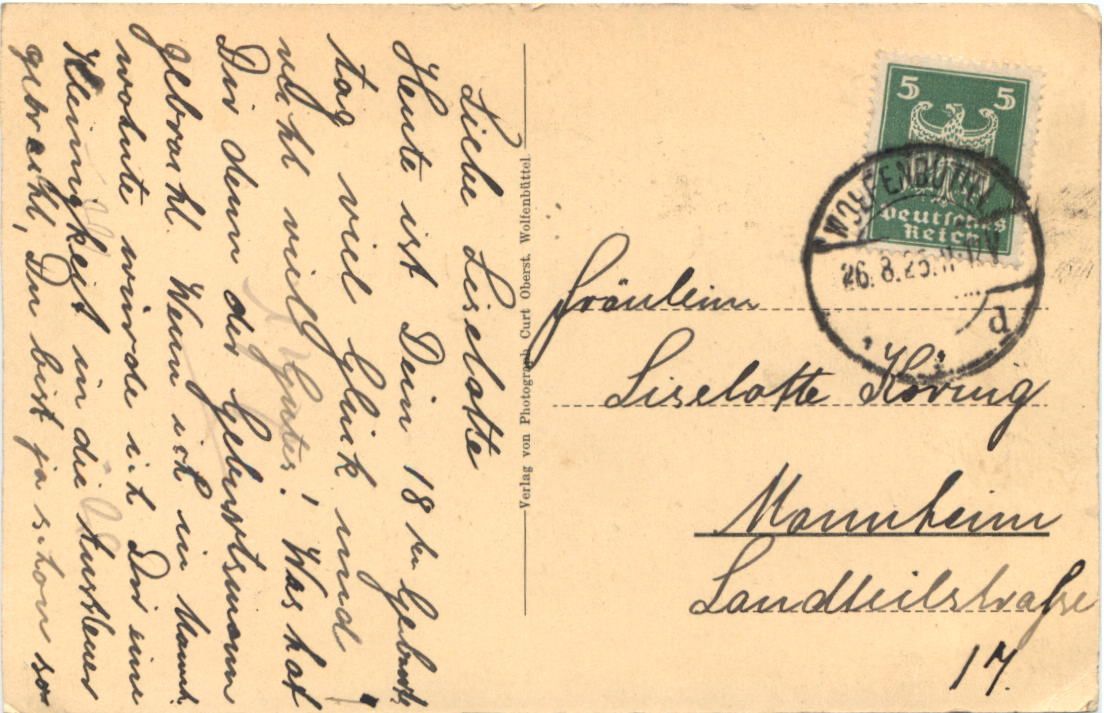 Liebe Liselotte
Heute ist Dein 18 ter Geburts
tag viel Glück und
viel Gutes! Was hat
Dir denn der Geburtsmann
gebracht. Wenn ich in Mannh.
wohnte würde ich Dir eine
Kleinigkeit in die
gebracht, Du bist ja schon so
Verlag von Photograph Curt Oberst, Wolfenbüttel.
5 5
Deutsches
Reich
WOLFENBÜTTEL
26.8.25.
d
Fräulein
Liselotte Köring
Mannheim
Landteilstraße
17.